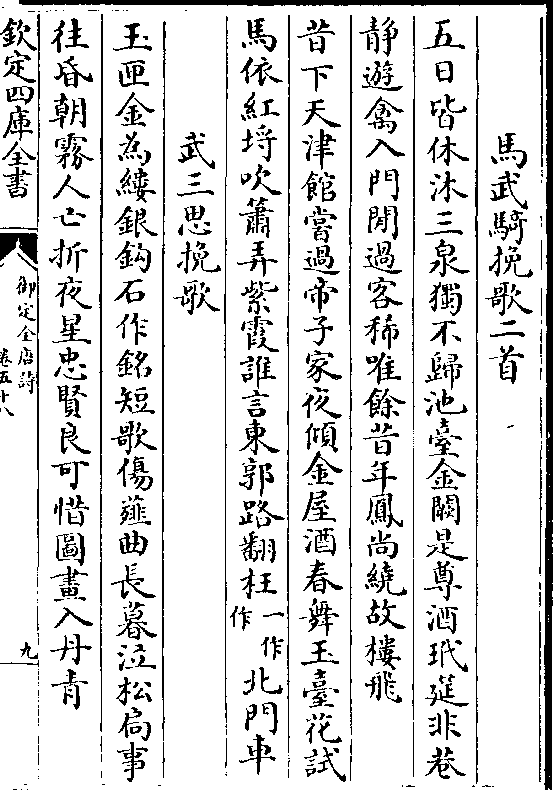 馬武騎挽歌二首
五日皆休沐三泉獨不歸池臺金闕是尊酒玳筵非巷
静遊禽入門閒過客稀唯餘昔年鳳尚繞故樓飛
昔下天津館嘗過帝子家夜傾金屋酒春舞玉臺花試
馬依紅埒吹簫弄紫霞誰言東郭路翻枉一作作北門車
武三思挽歌
玉匣金為縷銀鈎石作銘短歌傷薤曲長暮泣松扃事
往昏朝霧人亡折夜星忠賢良可惜圖畫入丹青
欽定四庫全書
御定全唐詩
卷五十八
九